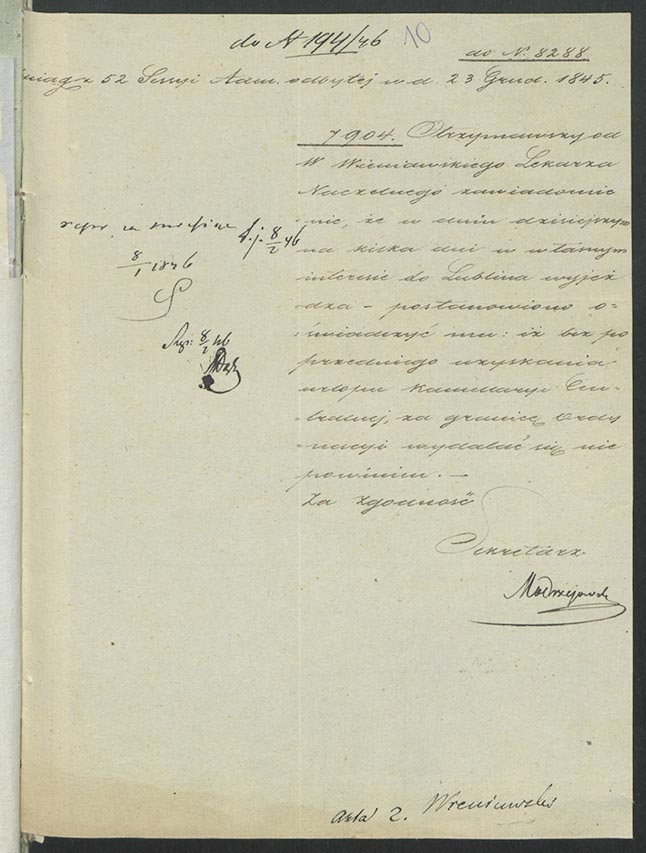 do N 194/46 10
do N. 8288
52 Sessyi Adm. odbytej w d. 23 Grud. 1845.
7904. Otrzymawszy od
W Wieniawskiego Lekarza
Naczelnego zawiadomie
nie, że w dniu dzisiejszym
na kilka dni w własnym
interesie do Lublina wyjeż
dza - postanowiono o-
świadczyć mu: iż bez po
przedniego uzyskania
urlopu Kancellaryi Cen-
tralnej, za granicę Ordy
nacyi wydalać się nie
powinien. —
Za zgodność
Sekretarz
Modrzejewski
8/1 1846
8/2 46
8/2 46
Akta 2. Wieniawski